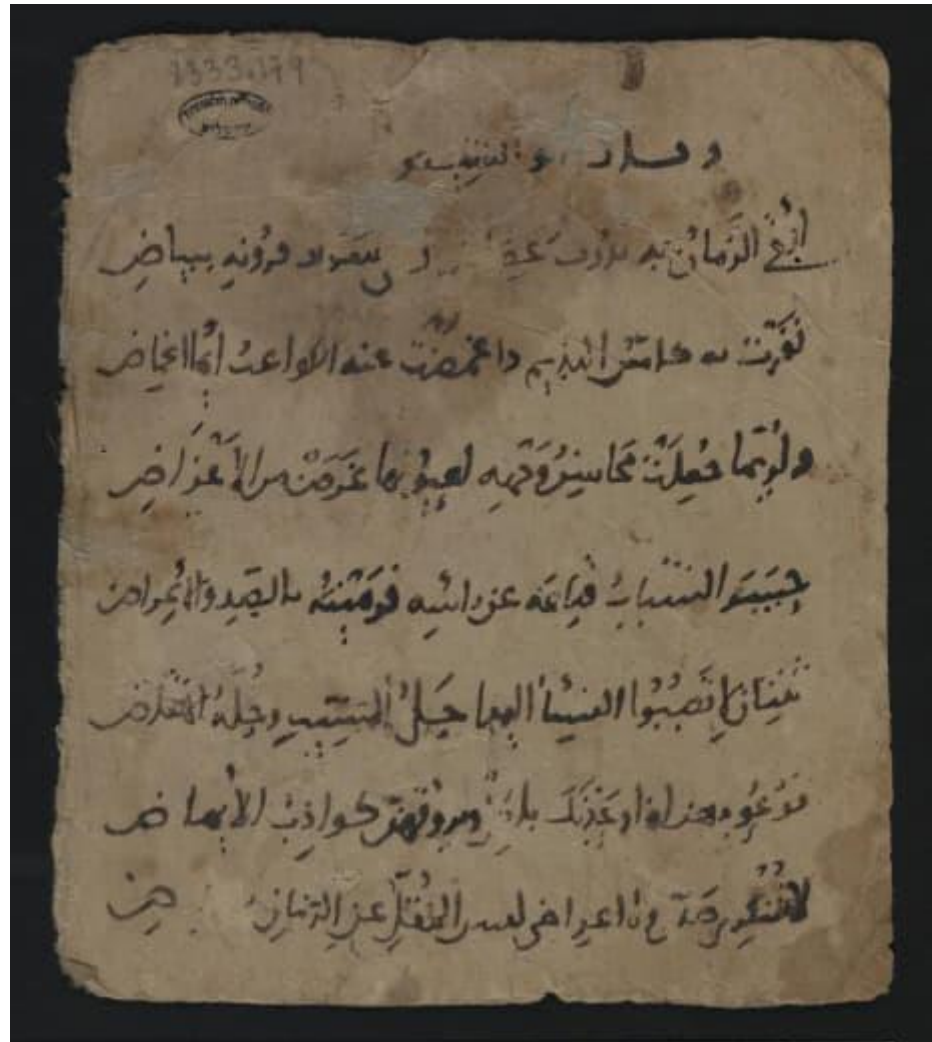 1333.179
وقال ابو الشيص
أبقى الزمان به ندوب عضاض ورمى سواد قرونه ببياض
نفرت به كاس النديم واغمضت عنه الكواعب أيما اغماض
ولربما جعلت محاسن وجهه لعيونها غرضا من الأغراض
حسر الشباب قناعه عن راسه فرمينه بالصد والاعراض
ثنتان لا تصبوا النساء إليهما حلي المشيب وحلة
فوعودهن اذا وعدنك باطل وبروقهن كواذب الأيماض
لا تنكري صدي ولا اعراضي ليس المقل عن الزمان